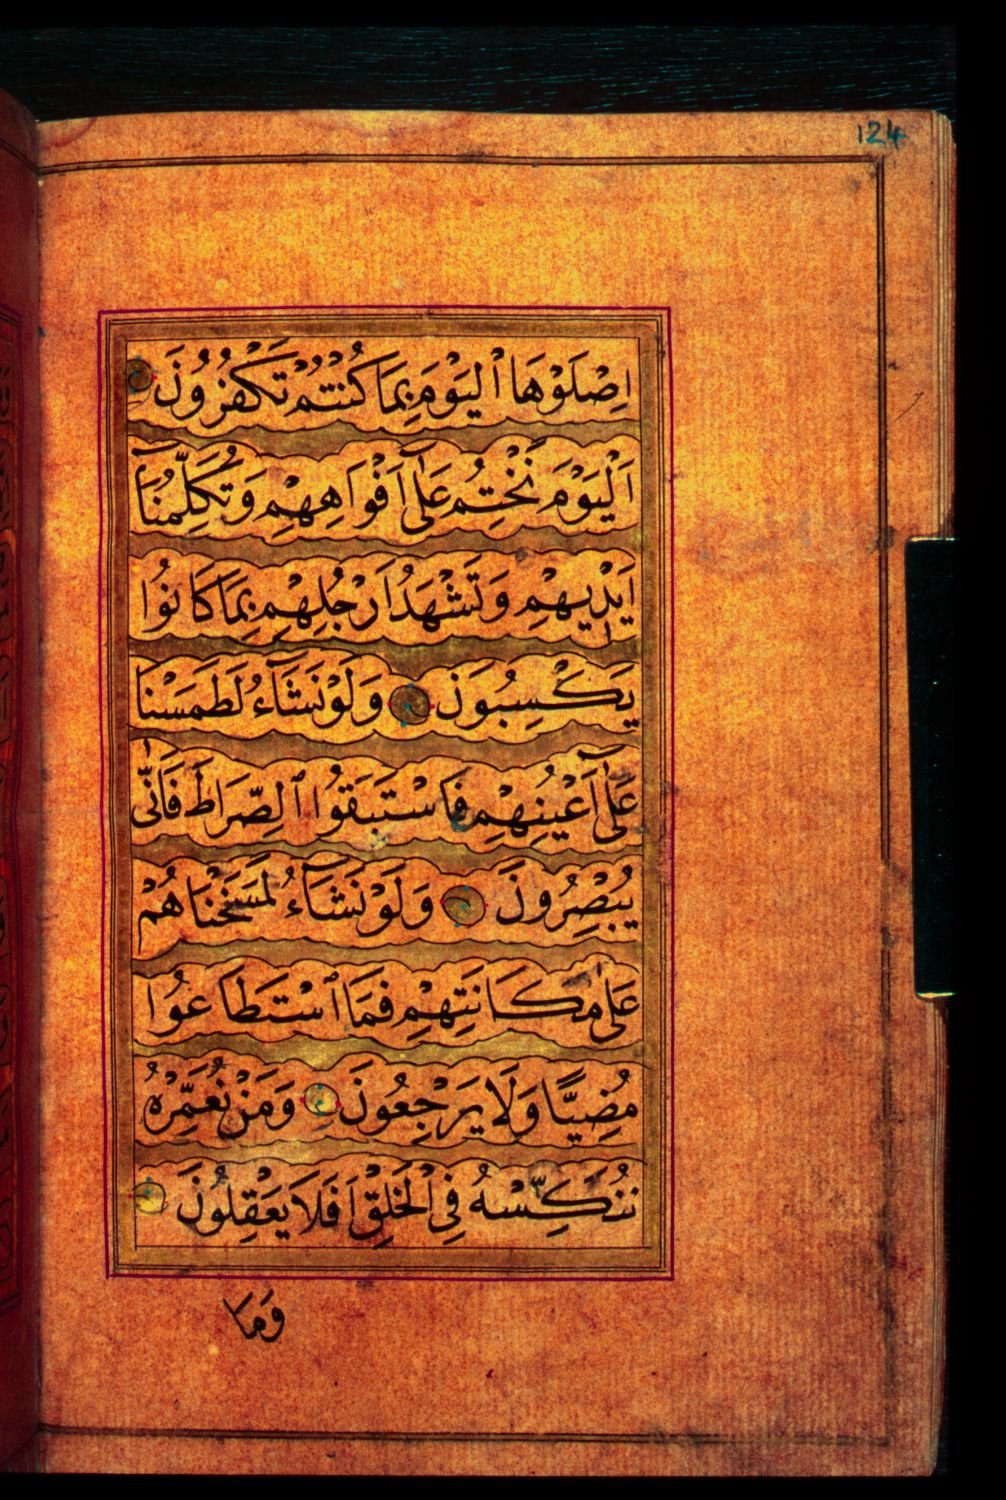 124
اِصْلَوْهَا ٱلْيَوْمَ بِمَا كُنْتُمْ تَكْفُرُونَ
اَلْيَوْمَ نَخْتِمُ عَلٰٓى اَفْوَاهِهِمْ وَتُكَلِّمُنَٓا
اَيْدِيهِمْ وَتَشْهَدُ اَرْجُلُهِمْ بِمَا كَانُوا
يَكْسِبُونَ وَلَوْ نَشَٓاءُ لَطَمَسْنَا
عَلٰٓى اَعْيُنِهِمْ فَاسْتَبَقُوا ٱلصِّرَاطَ فَاَنّٰى
يُبْصِرُونَ وَلَوْ نَشَٓاءُ لَمَسَخْنَاهُمْ
عَلٰى مَكَانَتِهِمْ فَمَا ٱسْتَطَاعُوا
مُضِيًّا وَلَا يَرْجِعُونَ وَمَنْ نُعَمِّرْهُ
نُنَكِّسْهُ فِي ٱلْخَلْقِ اَفَلَا يَعْقِلُونَ
وَمَا